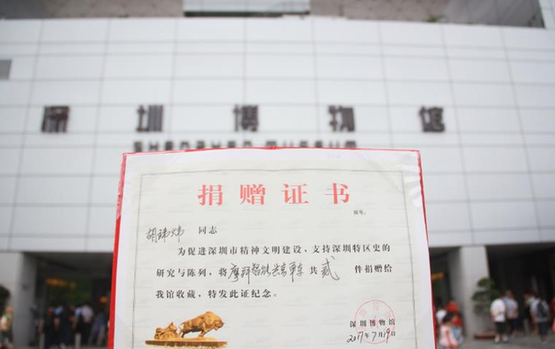 深圳博物馆
SHENZHEN MUSEUM
捐赠证书
编号:
胡玮炜 同志
为促进深圳市精神文明建设，支持深圳特区史
的研究与陈列，将摩拜智能共享单车共贰件捐赠给
我馆收藏，特发此证纪念。
深圳博物馆
2017年7月19日